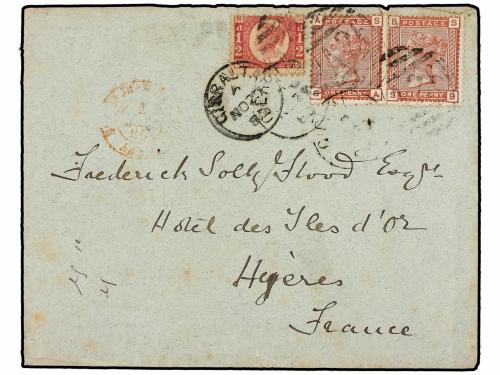 POSTAGE POSTAGE
ONE PENNY ONE PENNY
GIBRALTAR
NO
Frederick Solly Flood Esqre
Hotel des Iles d'Or
Hyères
France